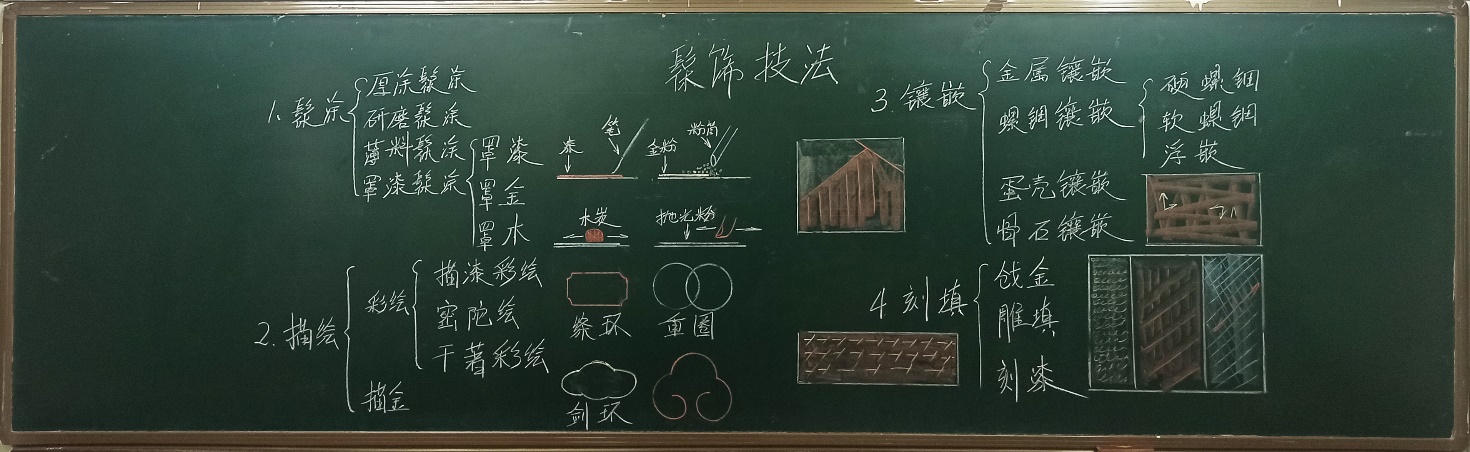 髹饰技法
1.髹涂
厚涂髹涂
研磨髹涂
薄料髹涂
罩漆髹涂
罩漆
罩金
罩水
漆
笔
金粉
粉筒
木炭
抛光粉
2.描绘
彩绘
描漆彩绘
密陀绘
干著彩绘
描金
绦环
重圈
剑环
3.镶嵌
金属镶嵌
螺钿镶嵌
硬螺钿
软螺钿
浮嵌
蛋壳镶嵌
骨石镶嵌
4刻填
戗金
雕填
刻漆